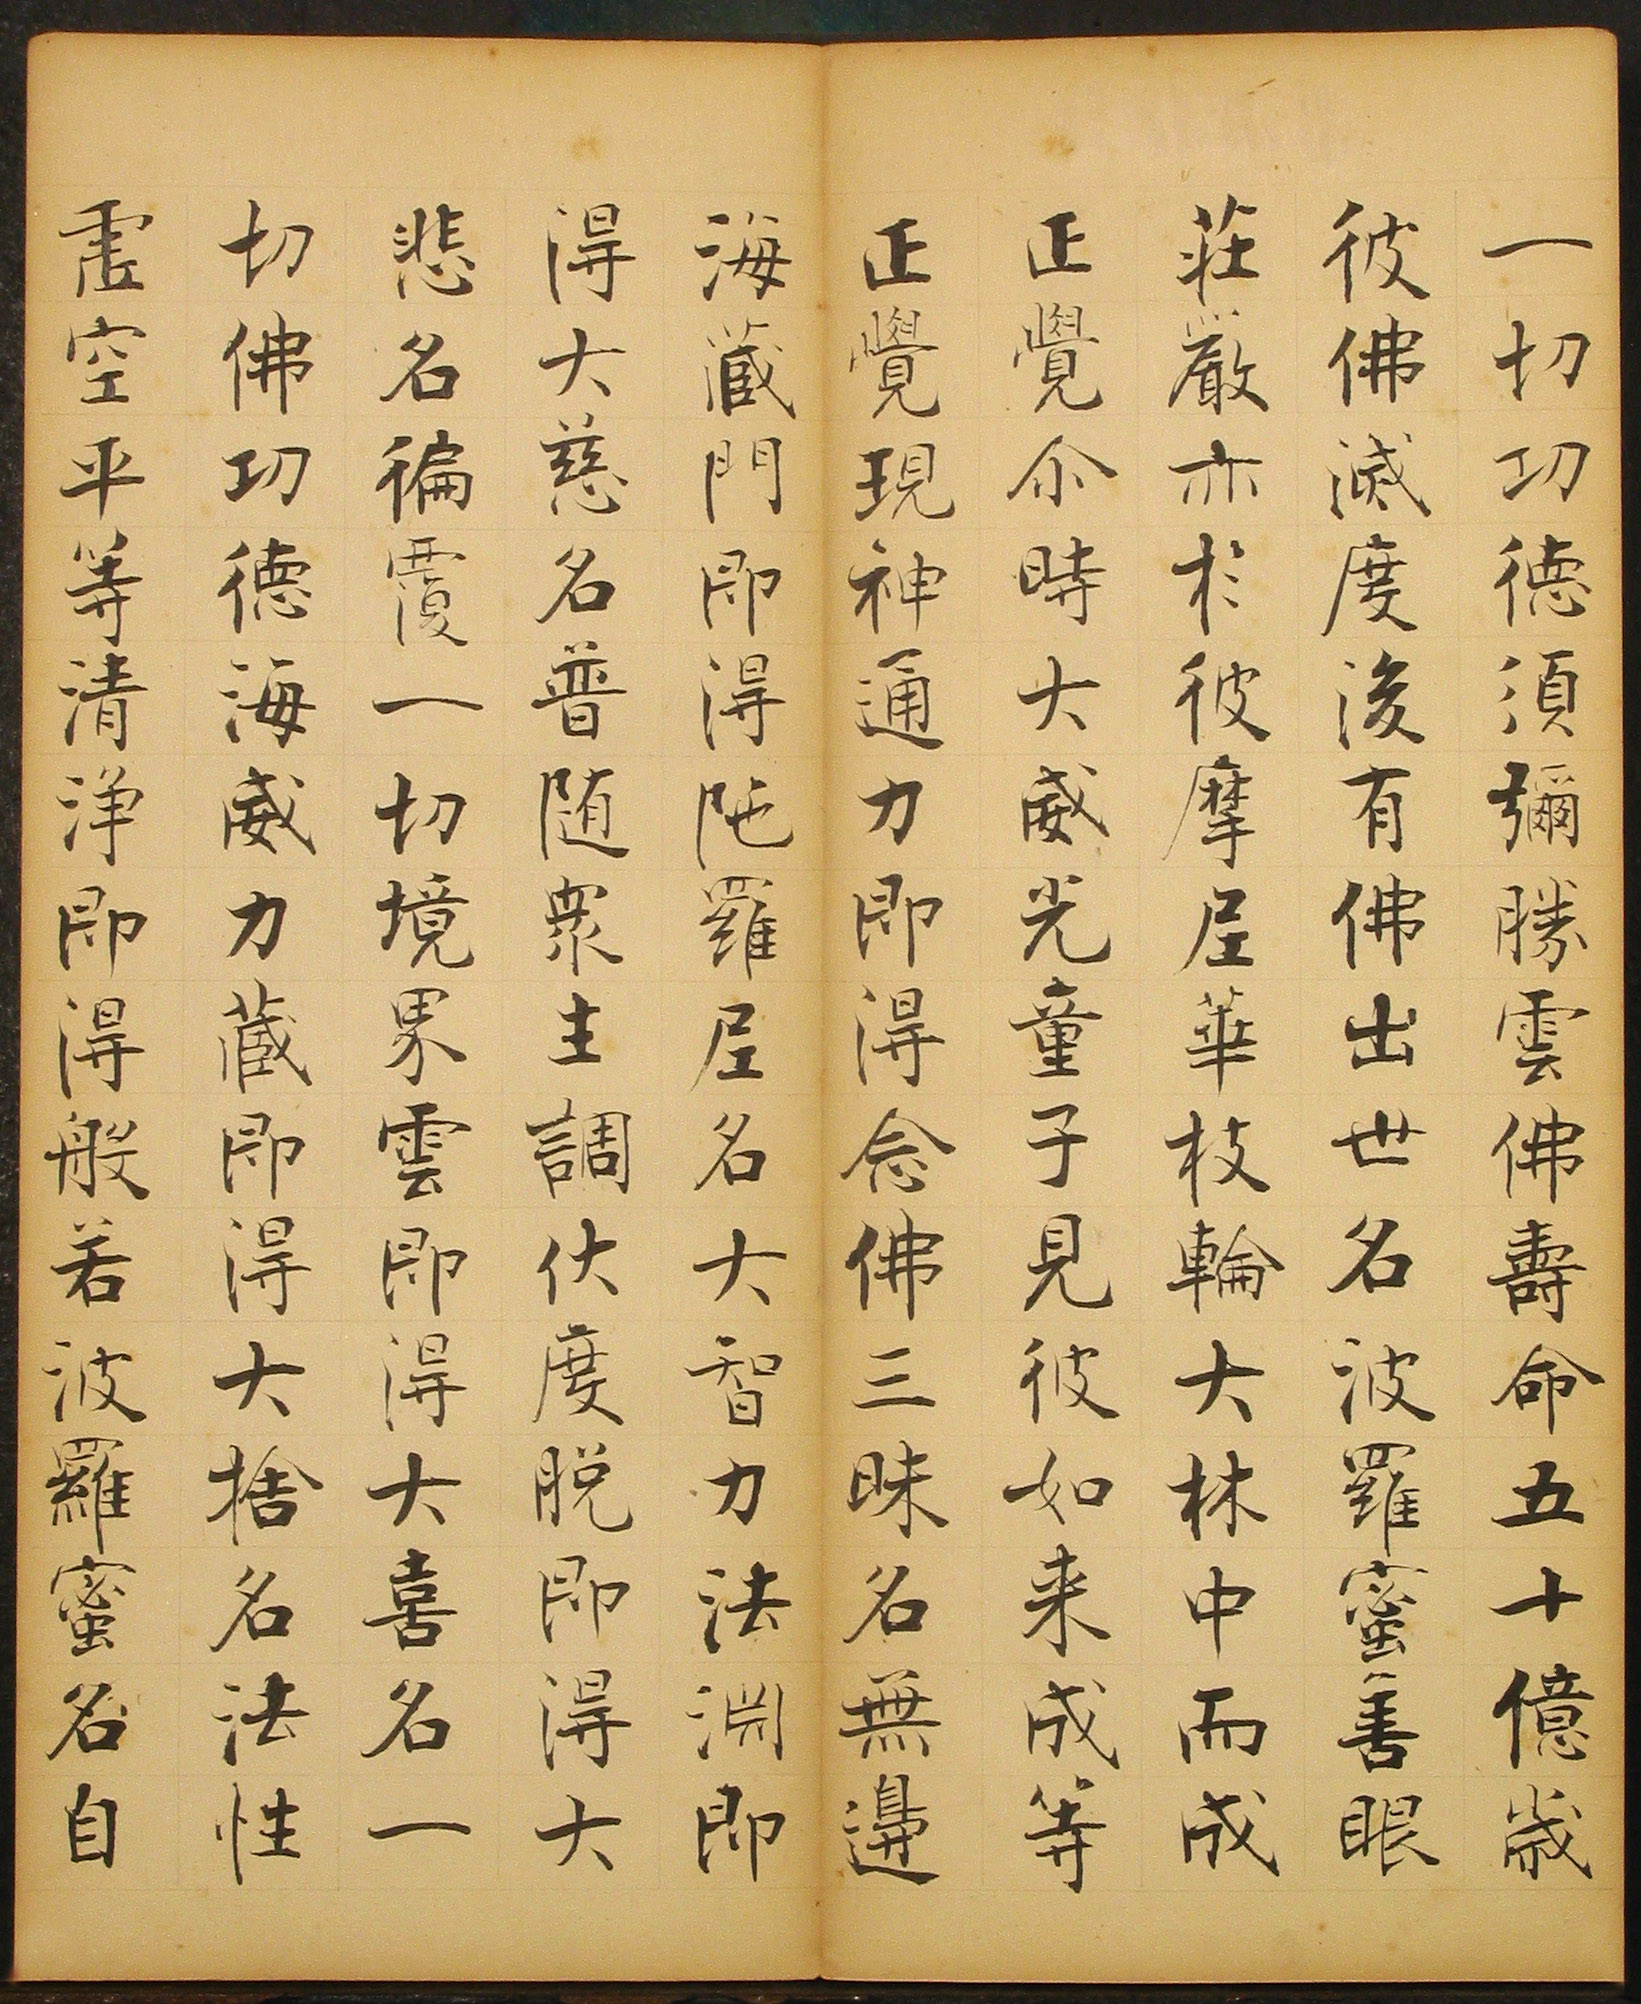 一切功德須彌勝雲佛壽命五十億歲
彼佛滅度後有佛出世名波羅蜜善眼
莊嚴亦於彼摩尼華枝輪大林中而成
正覺尒時大威光童子見彼如來成等
正覺現神通力即得念佛三昧名無邊
海藏門即得陁羅尼名大智力法淵即
得大慈名普随衆生調伏度脫即得大
悲名徧覆一切境界雲即得大喜名一
切佛功德海威力藏即得大捨名法性
虛空平等清淨即得般若波羅蜜名自